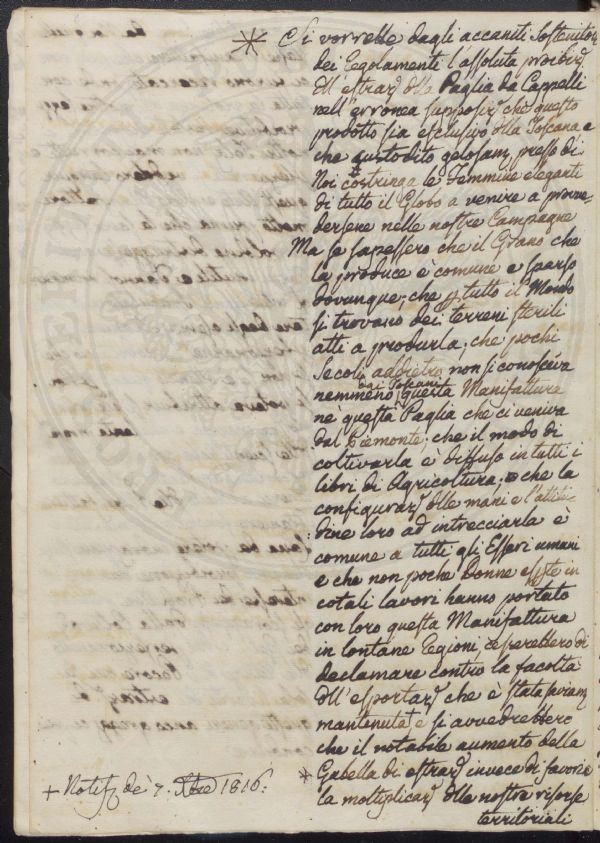 * Si vorrebbe dagli accaniti Sostenitori
dei Regolamenti l'assoluta proibiz.
dll'estraz. dlla Paglia da Cappelli
nell'erronea supposiz. che questo
prodotto sia esclusivo dlla Toscana e
che custodito gelosam. presso di
Noi costringa le Femmine eleganti
di tutto il Globo a venire a provve-
dersene nelle nostre Campagne
Ma se sapessero che il Grano che
la produce è comune e sparso
dovunque; che p tutto il Mondo
si trovano dei terreni sterili
atti a produrla; che pochi
Secoli addietro non si conosceva
dai Toscani
nemmeno questa Manifattura
nè questa Paglia che ci veniva
dal Piemonte; che il modo di
coltivarla è diffuso in tutti i
libri di Agricoltura; e che la
configuraz. dlle mani e l'attitu-
dine loro ad intrecciarla è
comune a tutti gli Esseri umani
e che non poche Donne in
cotali lavori hanno portato
con loro questa Manifattura
in lontane Regioni cesserebbero di
declamare contro la facoltà
dll'esportaz. che è stata saviam.
mantenuta e si avvedrebbero
che il notabile aumento della
* Gabella di estraz. invece di favorire
la moltiplicaz. dlle nostre risorse
territoriali
+ Notif. de' 7. 1816: